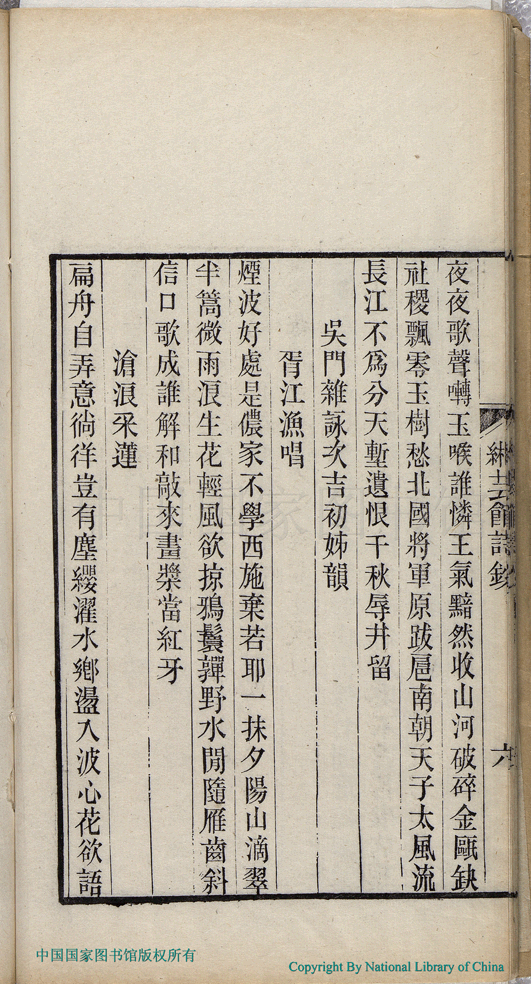 夜夜歌聲囀玉喉誰憐王氣黯然收山河破碎金甌缺
社稷飄零玉樹愁北國將軍原跋扈南朝天子太風流
長江不爲分天塹遺恨千秋辱井留
吳門雜詠次吉初姊韻
胥江漁唱
煙波好處是儂家不學西施棄若耶一抹夕陽山滴翠
半篙微雨浪生花輕風欲掠鴉鬟嚲野水閒隨雁齒斜
信口歌成誰解和敲來畫槳當紅牙
滄浪采蓮
扁舟自弄意徜徉豈有塵纓濯水鄉盪入波心花欲語
緗芸館詩鈔
六
中国国家图书馆版权所有
Copyright By National Library of China